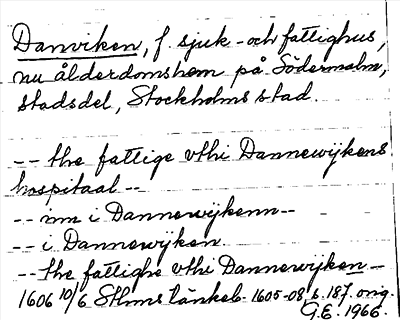 Danviken, f. sjuk- och fattighus,
nu ålderdomshem på Södermalm,
stadsdel, Stockholms stad.
-- the fattige vthi Dannewijkens
hospitaal --
-- inn i Dannewijkenn --
-- i Dannewijken.
-- the fattighe vthi Dannewijken --
1606 10/6 Sthms tänkeb. 1605-08, s. 187. orig.
G.E. 1966.